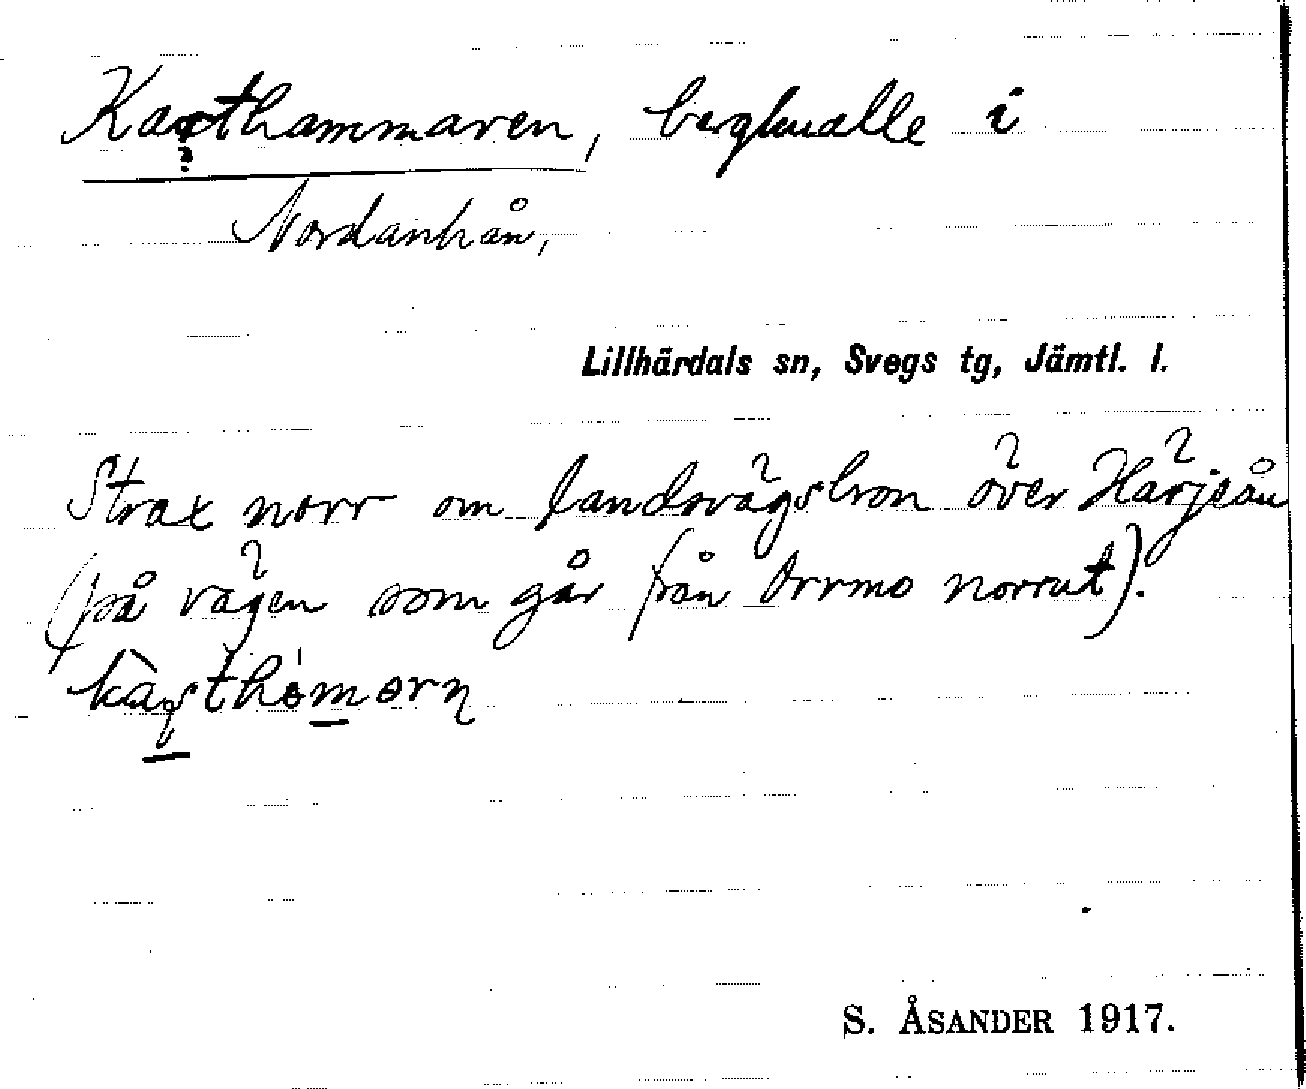 Kaxthammaren, bergknalle i
Nordanhån,
Lillhärdals sn, Svegs tg, Jämtl. l.
Strax norr om landsvägsbron över Härjeån
(på vägen som går från Orrmo norrut).
S. ÅSANDER 1917.